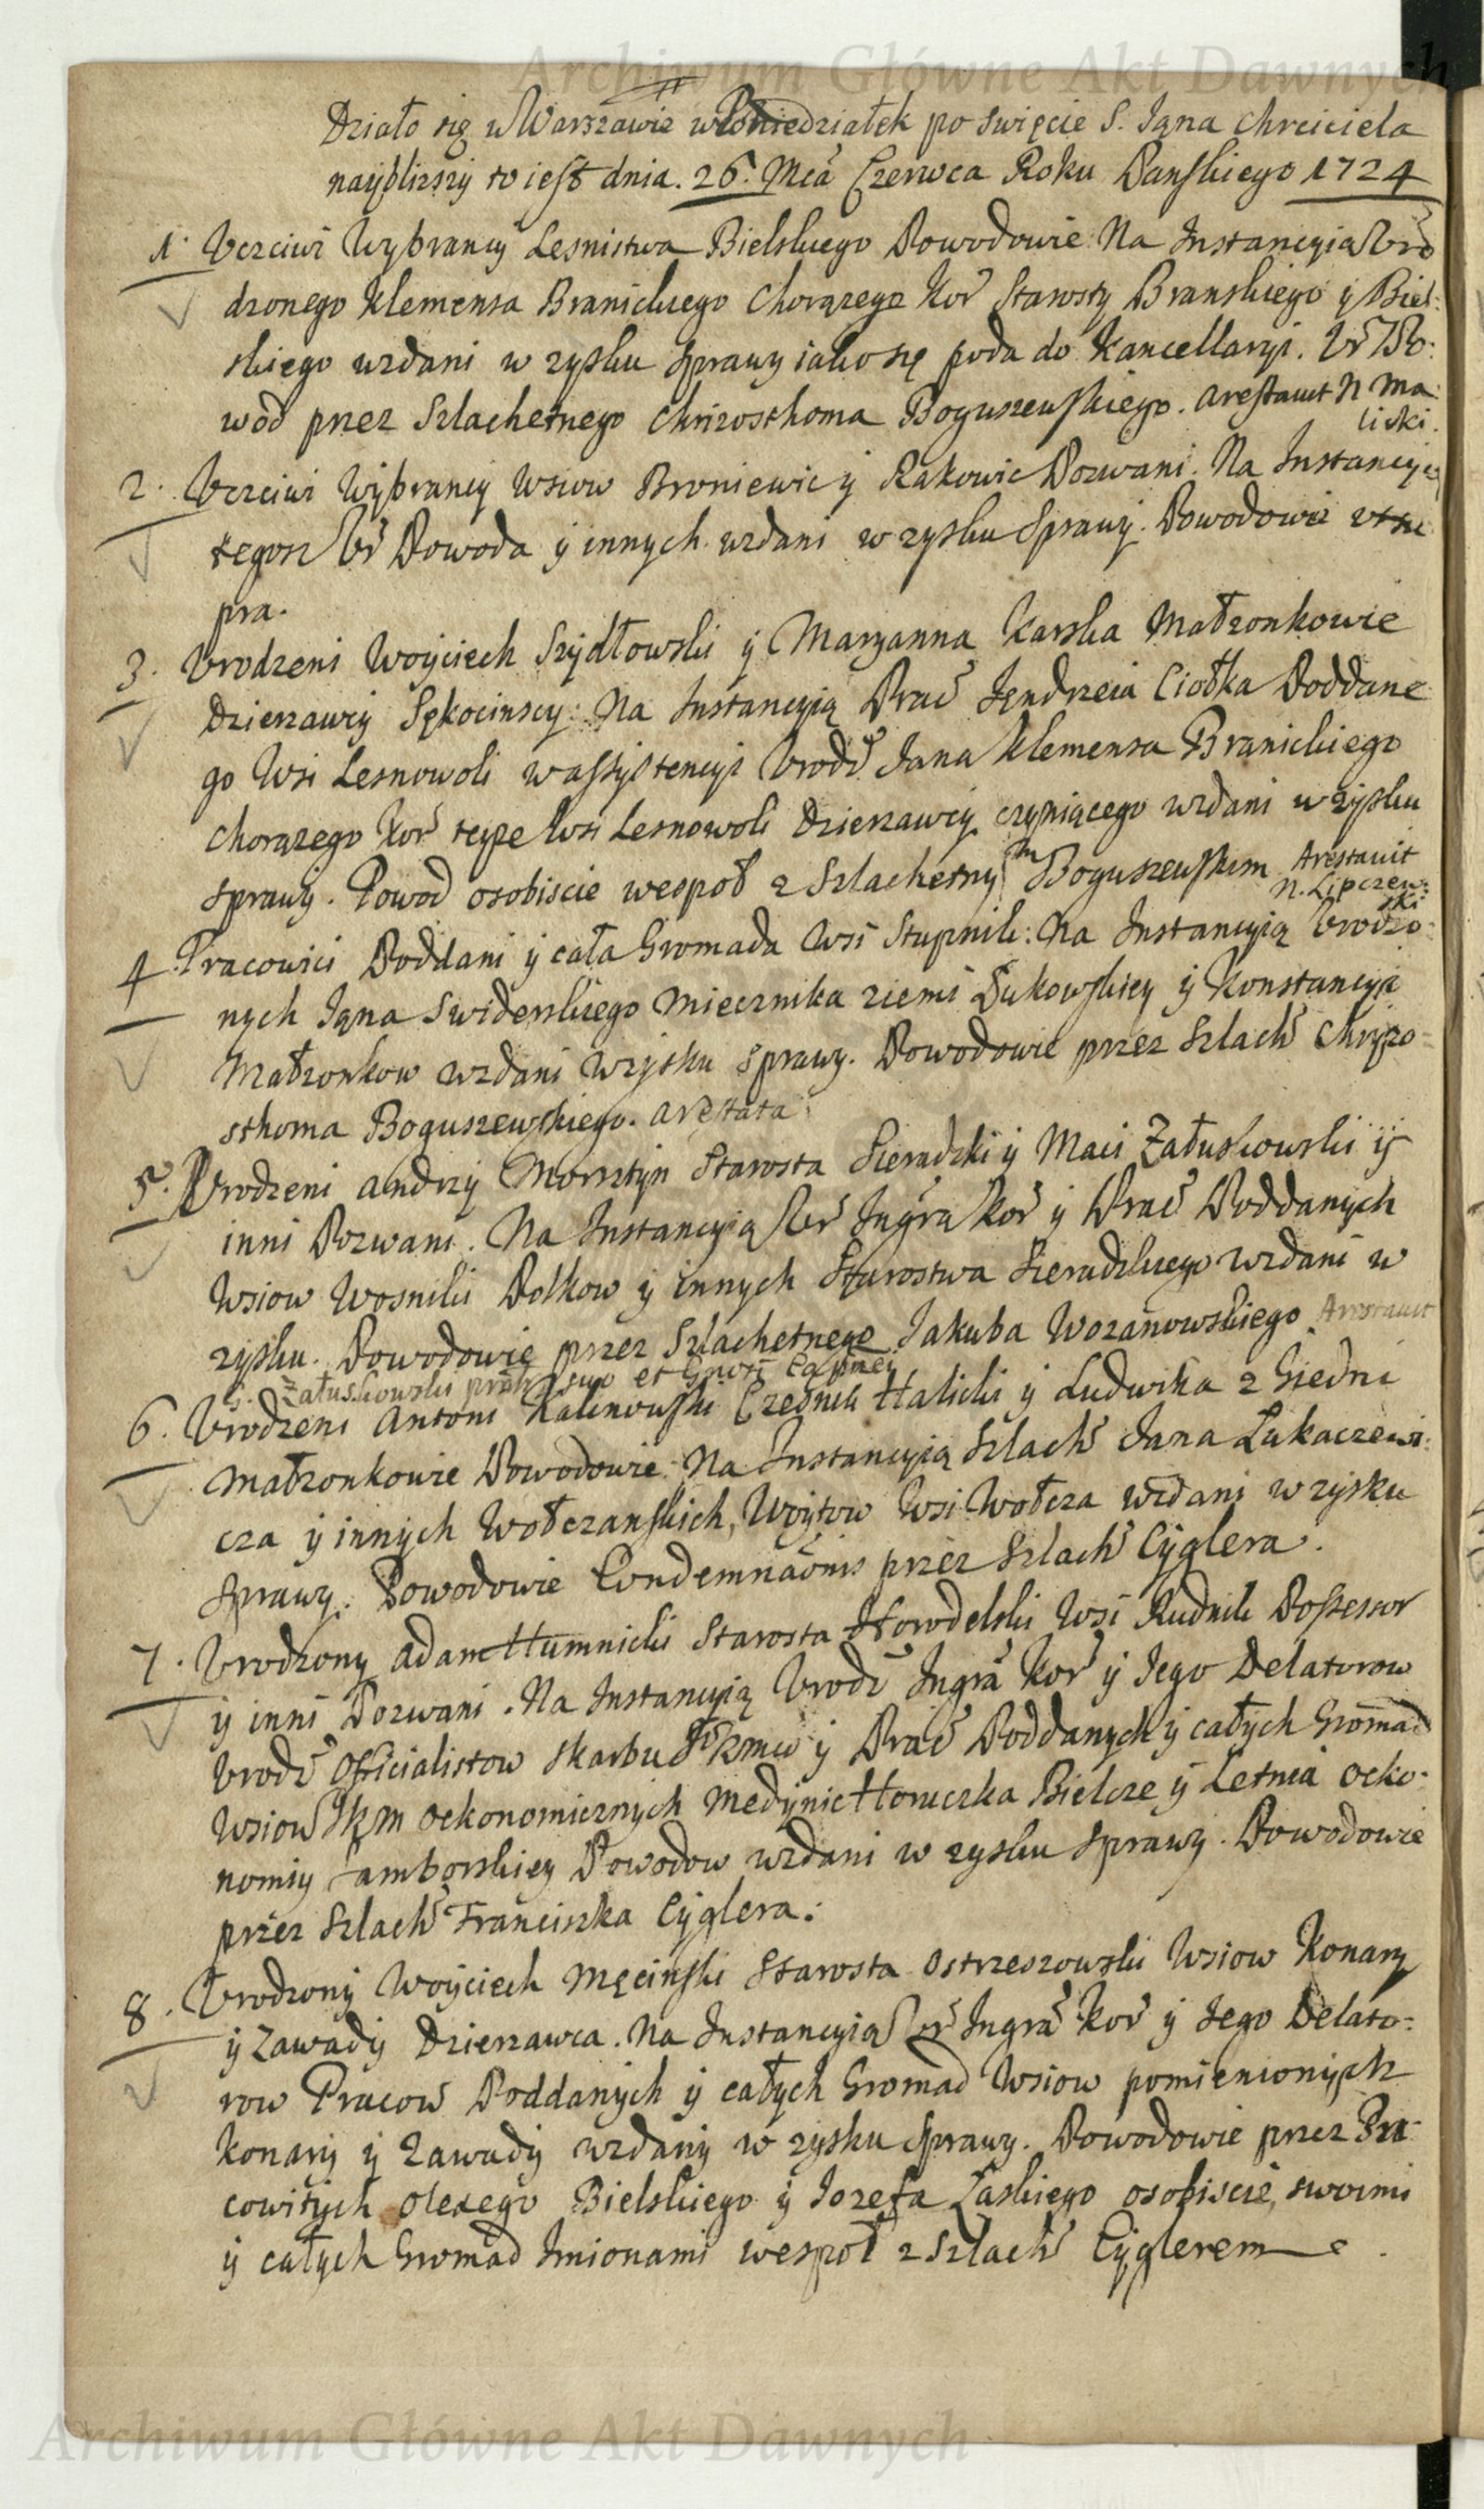 Archiwum Główne Akt Dawnych
Działo się w Warszawie w Poniedziałek po swięcie S. Jąna Chrciciela
naÿblizszÿ to iest dnia. 26. Mcā Czerwca Roku Panskiego 1724
1. Vczciwi Wÿbrancÿ Lesnistwa Bielskiego Powodowie Na Instancyią Vro
dzonego Klemensa Branickiego Chorązego Kor Starosty Branskiego ÿ Biel:
skiego wzdani w zysku sprawy iako się poda do Kancellaryi. Vr Po:
wod przez Szlachetnego Chrizosthoma Boguszewskiego. arestavit N Ma
licki.
2. Vczciwi Wÿbrancy Wsiow Broniewic ÿ Rakowic Pozwani. Na Instancyią
tegosz Vr Powoda ÿ innych wzdani w zysku Sprawÿ. Powodowie vt su
pra.
3. Vrodzeni Woÿciech Szÿdłowski ÿ Maryanna Karska Małzonkowie
Dzierzawcÿ Sękocinscy: Na Instancyią Prac Jendrzeia Ciołka Poddane
go Wsi Lesnowoli w assÿstencyi Vrodz Jana Klemensa Branickiego
Chorązego Kor teyze Wsi Lesnowoli Dzierzawcÿ czyniącego wzdani w zÿsku
sprawÿ. Powod osobiscie wespoł z Szlachetnym Boguszewskim Arestavit
N. Lipczew:
ski
4. Pracowici Poddani ÿ cała Gromada Wsi Stupnik: Na Instancyią Vrodzo
nych Jąna Swiderskiego Miecznika ziemi Łukowskiey ÿ Konstancyi
Małzonkow wzdani w zysku sprawy. Powodowie przez Szlach Chryzo
sthoma Boguszewskiego. arestata
5. Vrodzeni Andrzÿ Morsztÿn Starosta Sieradzki ÿ Maci Załuskowski ÿ
inni Pozwani. Na Instancyią Vr Ingra Kor ÿ Prac Poddanÿch
Wsiow Wosniki Polkow ÿ innych Starostwa Sieradzkiego wzdani w
zysku. Powodowie przez Szlachetnego Jakuba Wozanowskiego Arestavit
G. Załuskowski suo et
6. Vrodzeni Antoni Kalinowski Czesnik Halicki ÿ Ludwika z Giedni
Małzonkowie Powodowie: Na Instancyią Szlach Jana Łukaczewi:
cza ÿ innych Wołczanskich, Woÿtow Wsi Wołcza wzdani w zÿsku
sprawy. Powodowie Condemnaōnis przez Szlach Cÿglera.
7. Vrodzony Adam Humnicki Starosta Howdelski Wsi Rudnik Possessor
ÿ inni Pozwani. Na Instancyią Vrodz Ingra Kor ÿ Jego Delatorow
Vrodz Officialistow Skarbu JKrmci ÿ Prac Poddanych ÿ całych Gromad
Wsiow JKM Oekonomicznych Medÿnic Horuczka Bielcze ÿ Letnia Oeko:
nomiy Samborskiey Powodow wzdani w zysku sprawy. Powodowie
przez Szlach Franciszka Cÿglera.
8. Vrodzonÿ Woÿciech Męcinski Starosta Ostrzeszowski Wsiow Konarÿ
ÿ Zawadÿ Dzierzawca. Na Instancyią Vr Ingra Kor ÿ Jego Delato:
row Pracow Poddanÿch ÿ całÿch Gromad Wsiow pomienionÿch
Konarÿ ÿ Zawadÿ wzdanÿ w zysku sprawy. Powodowie przez Pra:
cowitÿch Olexego Bielskiego ÿ Jozefa Laskiego osobiscie, swoimi
ÿ całÿch Gromad Imionami wespoł z Szlach Cÿglerem.
Archiwum Główne Akt Dawnych